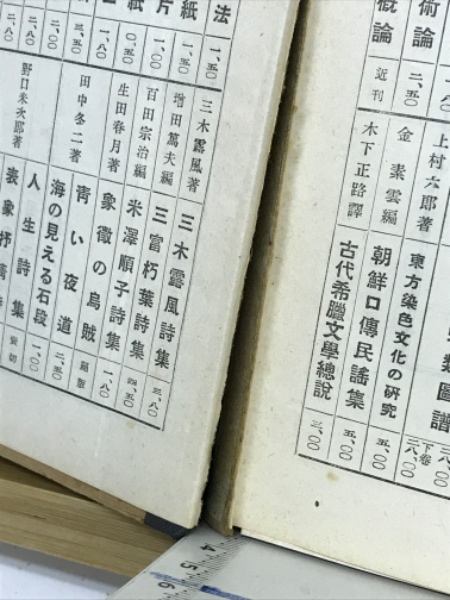 術論
概論
二、五〇
近刊
上村六郎著
東方染色文化の研究
五、〇〇
金素雲編
朝鮮口傳民謠集
五、〇〇
木下正路譯
古代希臘文學總說
三、〇〇
類圖譜
下卷
二八、〇〇
法
一、五〇
三木露風著
三木露風詩集
三、八〇
紙
一、五〇
増田篤夫編
三富朽葉詩集
片
一、〇〇
百田宗治編
米澤順子詩集
四、五〇
紙
〇、五〇
生田春月著
象徵の烏賊
一、八〇
一、八〇
青い夜道
絕版
三、五〇
田中冬二著
海の見える石段
二、五〇
二、〇〇
人生詩集
一、〇〇
二、八〇
野口米次郎著
表象抒情詩
二、八〇
4
5
6